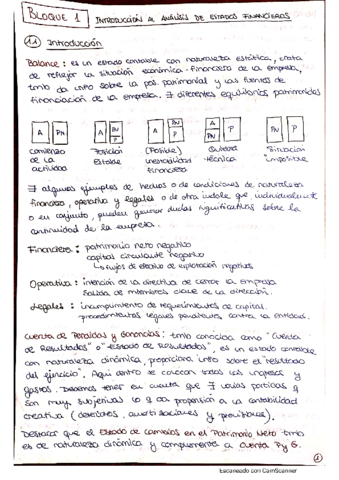 BLOQUE 1 INTRODUCCIÓN AL ANÁLISIS DE ESTADOS FINANCIEROS
1.1 Introducción
Balance: es un estado contable con naturaleza estática, trata
de reflejar la situación económica-financiera de la empresa,
tmb da info sobre la pos. patrimonial y las fuentes de
financiación de la empresa. ∃ diferentes equilibrios patrimoniales
A PN A PN P A P A PN P P
comienzo de la actividad
Posición Estable
(Posible) inestabilidad financiera
Quiebra técnica
Situación "imposible"
∃ algunos ejemplos de hechos o de condiciones de naturaleza
financiera, operativa y legales o de otra índole que, individualmente
o en conjunto, pueden generar dudas significativas sobre la
continuidad de la empresa.
Financiero: patrimonio neto negativo
capital circulante negativo
flujos de efectivo de explotación negativos
Operativa: intención de la directiva de cerrar la empresa
Salida de miembros clave de la dirección.
Legales: incumplimiento de requerimientos de capital.
procedimientos legales pendientes contra la entidad.
Cuenta de Pérdidas y Ganancias: tmb conocida como "Cuenta
de Resultados" o "Estado de Resultados", es un estado contable
con naturaleza dinámica, proporciona info sobre el "resultado
del ejercicio". Aquí dentro se recogen todos los ingresos y
gastos. Debemos tener en cuenta que ∃ varias partidas q
son muy subjetivas lo q da propensión a la contabilidad
creativa (deterioros, amortizaciones y provisiones).
Destacar que el Estado de Cambios en el Patrimonio Neto tmb
es de naturaleza dinámica y complementa a Cuenta PyG.
1
Escaneado con CamScanner